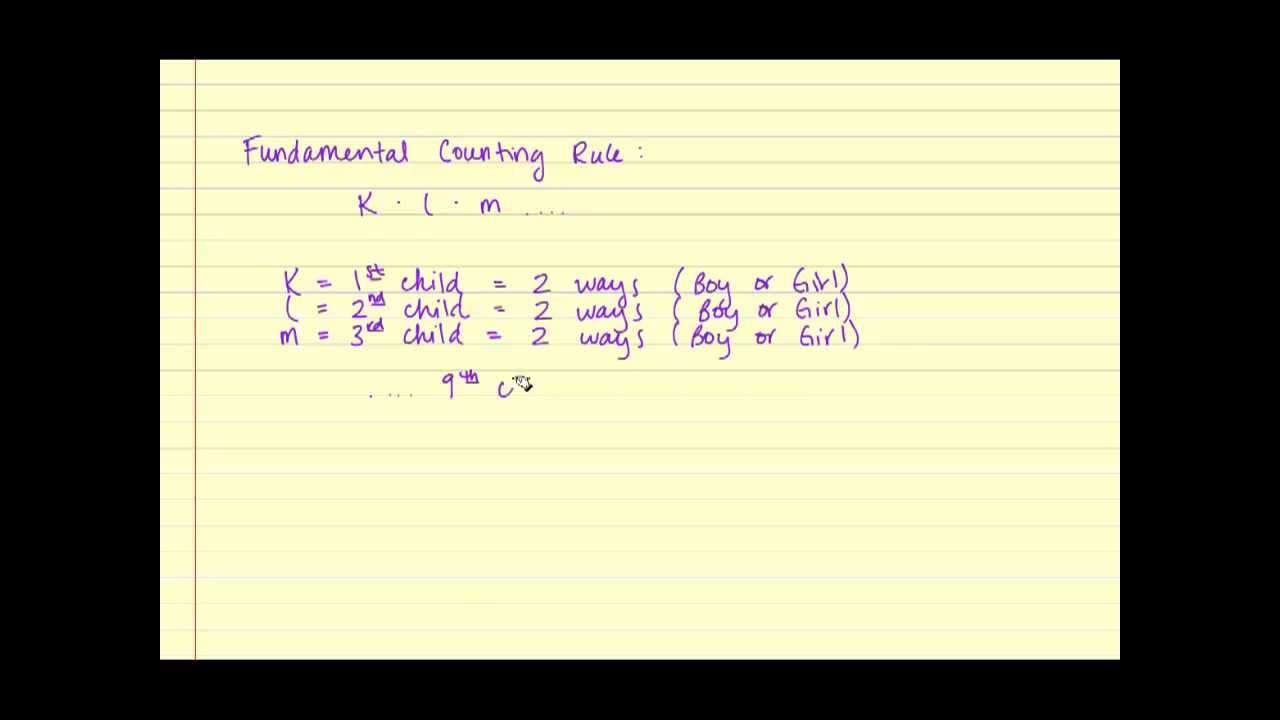 Fundamental Counting Rule :
K · l · m ....
K = 1st child = 2 ways (Boy or Girl)
l = 2nd child = 2 ways (Boy or Girl)
m = 3rd child = 2 ways (Boy or Girl)
..... 9th c